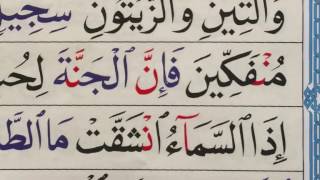 وَالتِّينِ وَالزَّيْتُونِ سِجِّيلٍ
مُنْفَكِّينَ فَإِنَّ الْجَنَّةَ
إِذَا السَّمَآءُ انْشَقَّتْ مَا الطَّ